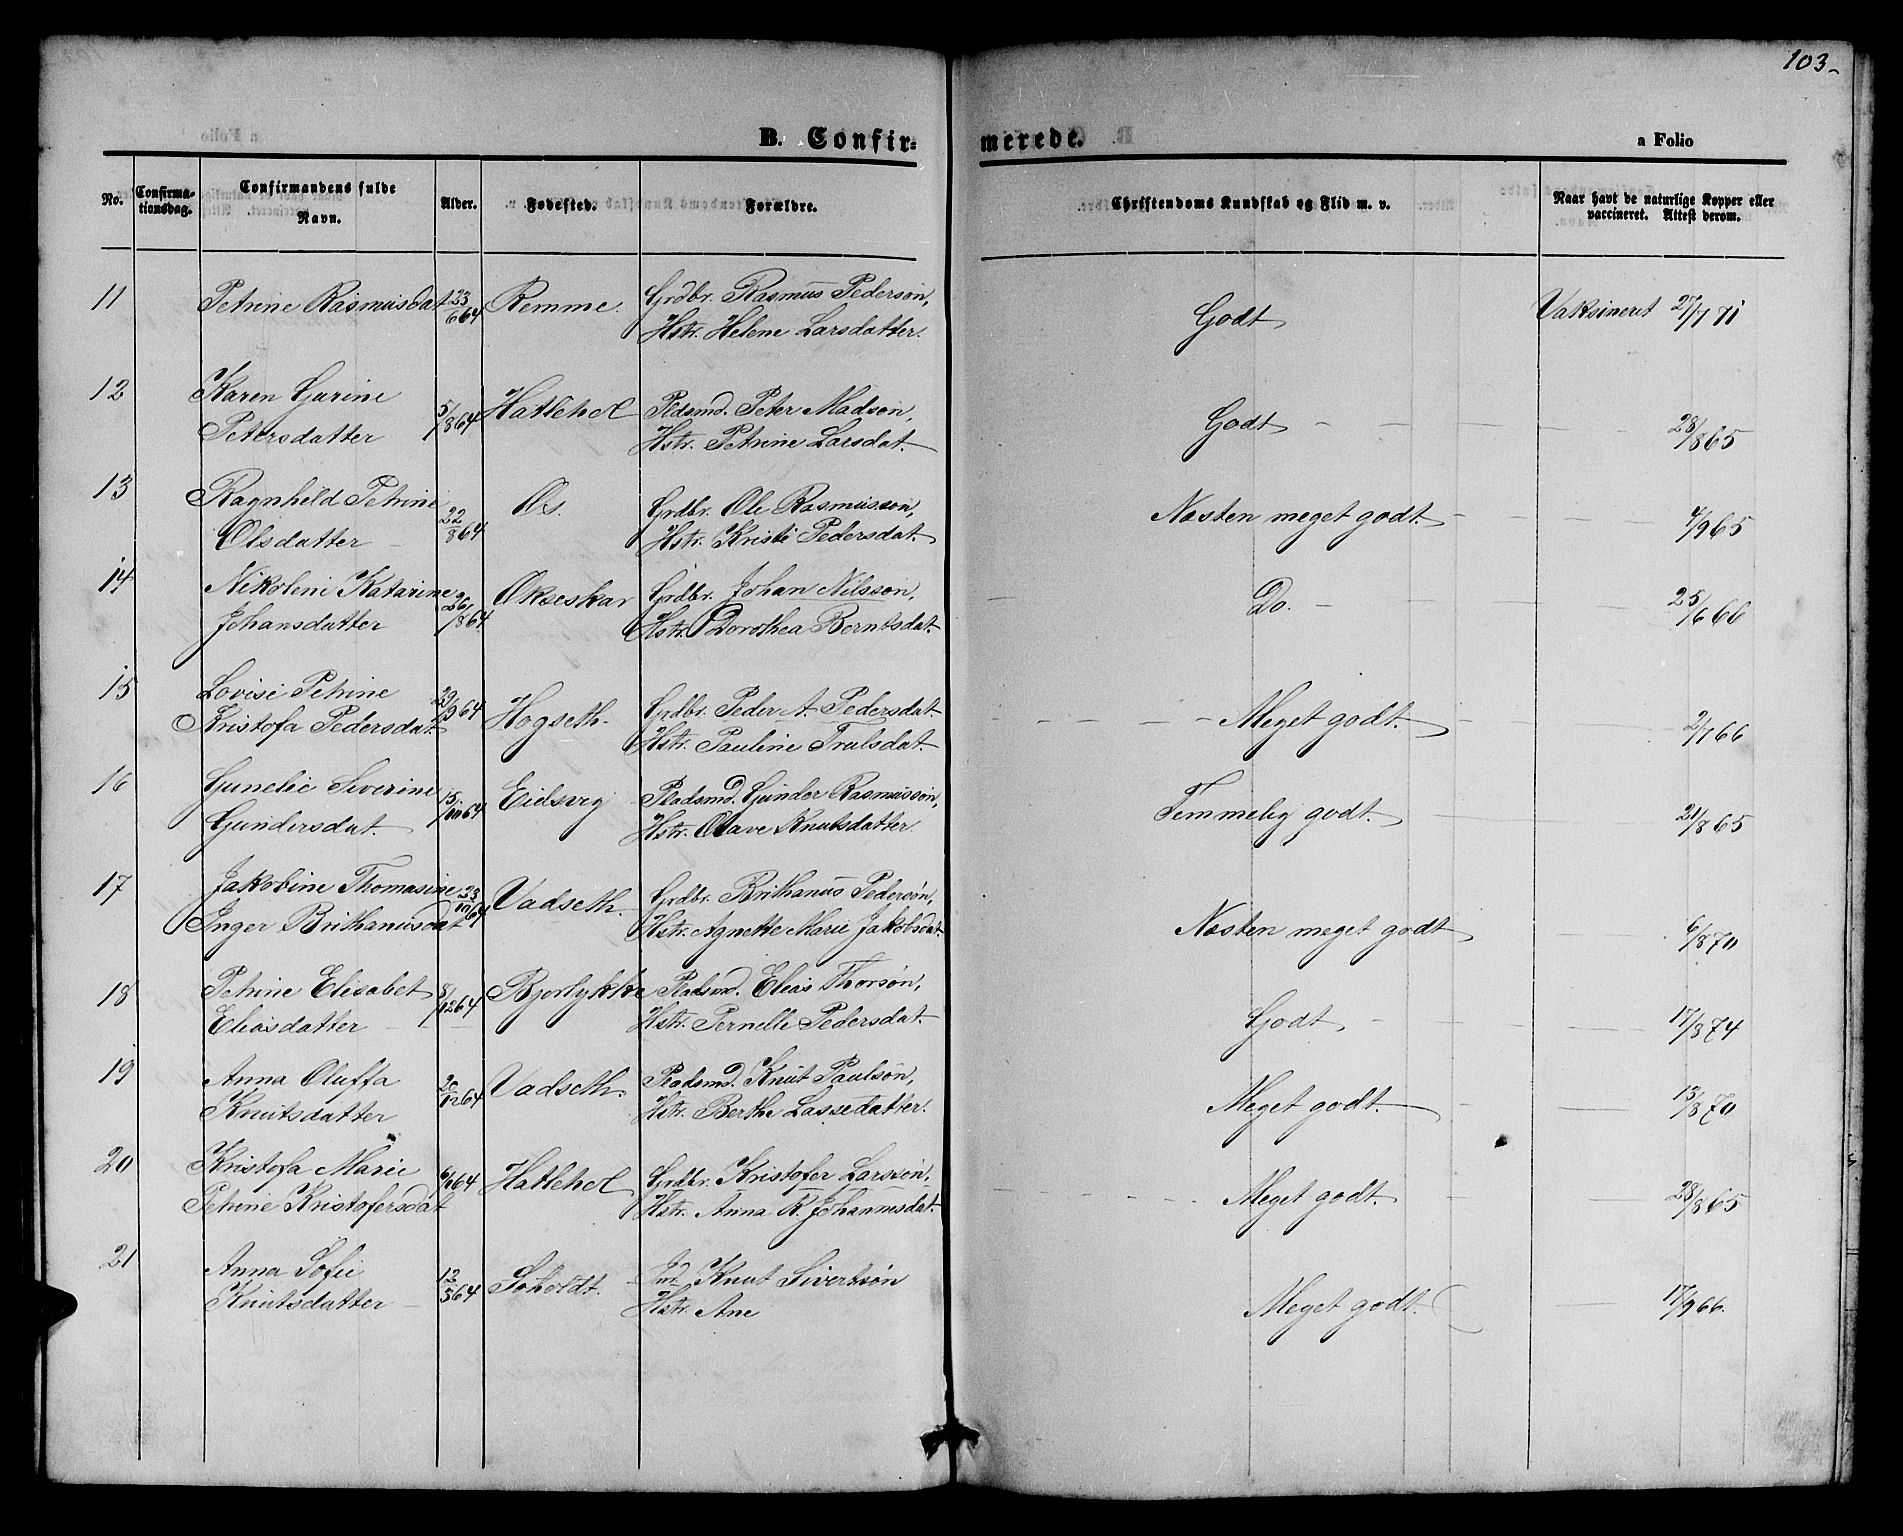 103
B. Confir=
merede.
a Folio
No.
Confirma=
tionsdag.
Confirmandens fulde
Navn.
Alder.
Fødested.
Forældre.
Christendoms Kundskab og Flid m. v.
Naar havt de naturlige Kopper eller
vaccineret. Attest derom.
11 Petrine Rasmusdat 23/6 64 Remme. Grdbr. Rasmus Pedersøn, Godt Vaksineret 27/7 71
Hstr. Helene Larsdatter.
12 Karen Gurine 5/8 64 Hatlehol Pladsmd. Peter Madsøn, Godt 28/8 65
Petersdatter Hstr. Petrine Larsdat.
13 Ragnhild Petrine 22/8 64 Øs. Grdbr. Ole Rasmussøn, Næsten meget godt. 4/9 65
Olsdatter Hstr. Kristi Pedersdat.
14 Nikoleni Katarine 26/8 64 Økseskar Grdbr. Johan Nilssøn, Do. 25/6 66
Johansdatter Hstr. Dorothea Berntsdat.
15 Lovise Petrine 29/9 64 Hogseth. Grdbr. Peder A. Pedersdat. Meget godt. 2/7 66
Kristofa Pedersdat. Hstr. Pauline Trulsdat.
16 Gunelie Siverine 15/10 64 Eidsveg Pladsmd. Gunder Rasmussøn, Temmelig godt. 21/8 65
Gundersdat. Hstr. Olave Knutsdatter.
17 Jakobine Thomasine 23/10 64 Vadseth. Grdbr. Brithanus Pedersøn, Næsten meget godt 6/8 70
Inger Brithanusdat Hstr. Agnette Marie Jakobsdat.
18 Petrine Elisabet 8/12 64 Bjørlykke Pladsmd. Elias Thorsøn, Godt 17/8 74
Eliasdatter Hstr. Pernelle Pedersdat.
19 Anna Oluffa 20/12 64 Vadseth. Pladsmd. Knut Paulsøn, Meget godt. 13/8 70
Knutsdatter Hstr. Berthe Lassedatter.
20 Kristofa Marie 6/1 64 Hatlehol Grdbr. Kristofer Larssøn, Meget godt. 28/8 65
Petrine Kristofersdat Hstr. Anna K. Johannesdat.
21 Anna Sofie 12/3 64 Søholdt. Ind. Knut Sivertsøn Meget godt. 17/9 66.
Knutsdatter Hstr. Ane